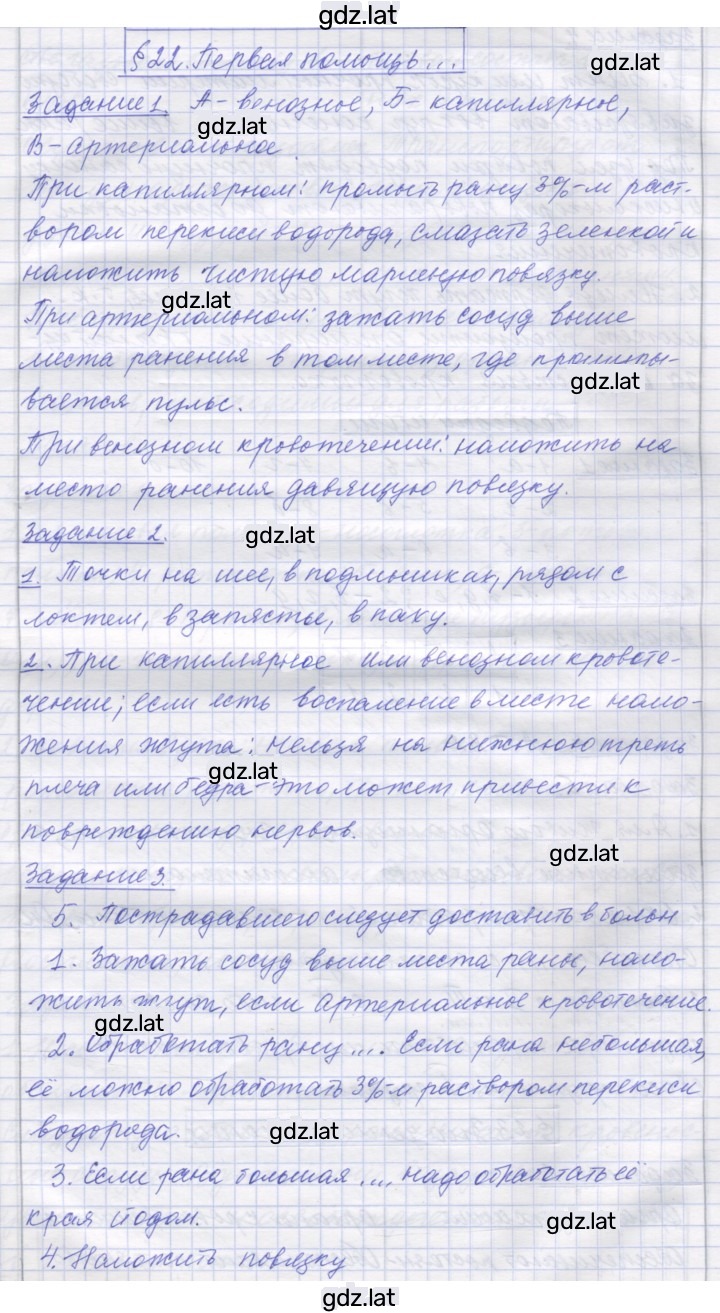 gdz.lat
§22. Первая помощь...
gdz.lat
Задание 1. А - венозное, Б - капиллярное,
gdz.lat
В - артериальное.
При капиллярном: промыть рану 3%-м раст-
вором перекиси водорода, смазать зеленкой и
наложить чистую марлевую повязку.
gdz.lat
При артериальном: зажать сосуд выше
места ранения в том месте, где прощупы-
gdz.lat
вается пульс.
При венозном кровотечении: наложить на
место ранения давящую повязку.
Задание 2.
gdz.lat
1. Точки на шее, в подмышках, рядом с
локтем, в запястье, в паху.
2. При капиллярное или венозном кровоте-
чение; если есть воспаление в месте нало-
жения жгута: нельзя на нижнюю треть
gdz.lat
плеча или бедра - это может привести к
повреждению нервов.
gdz.lat
Задание 3.
5. Пострадавшего следует доставить в больн
1. Зажать сосуд выше места раны, нало-
жить жгут, если артериальное кровотечение.
gdz.lat
2. Обработать рану .... Если рана небольшая,
её можно обработать 3%-м раствором перекиси
водорода.
gdz.lat
3. Если рана большая ..., надо обработать её
края йодом.
gdz.lat
4. Наложить повязку
gdz.lat